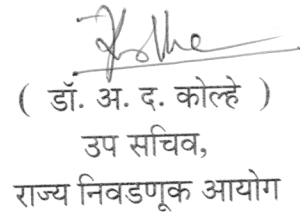 ( डॉ. अ. द. कोल्हे )
उप सचिव,
राज्य निवडणूक आयोग